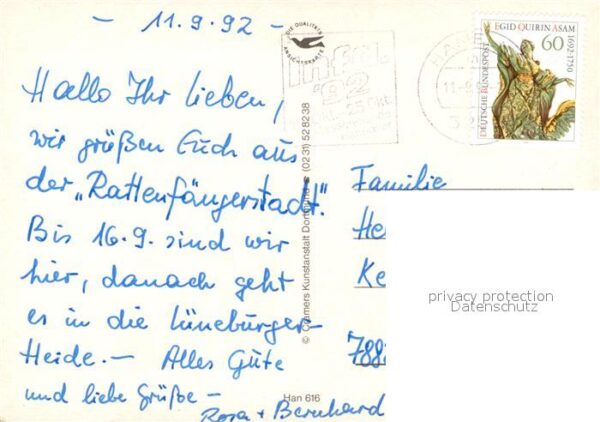 - 11.9.92 -
Hallo Ihr Lieben,
wir grüßen Euch aus
der „Rattenfängerstadt".
Bis 16.9. sind wir
hier, danach geht
es in die Lüneburger-
Heide. — Alles Gute
und liebe Grüße -
Rosa + Bernhard
DIE QUALITÄTS
ANSICHTSKARTE
infa
'92
HA
11.-9.
3
EGID QUIRIN ASAM
1692-1750
60
DEUTSCHE BUNDESPOST
© Cramers Kunstanstalt Dortmund (02 31) 52 82 38
Han 616
Familie
He
Ke
788
privacy protection
Datenschutz